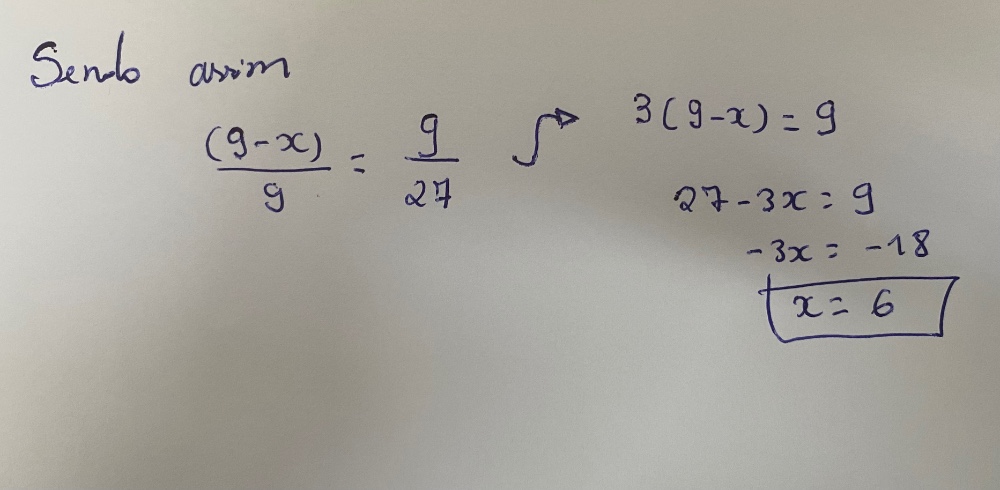 Sendo assim
(9-x)/9 = 9/27
3(9-x) = 9
27-3x = 9
-3x = -18
x = 6